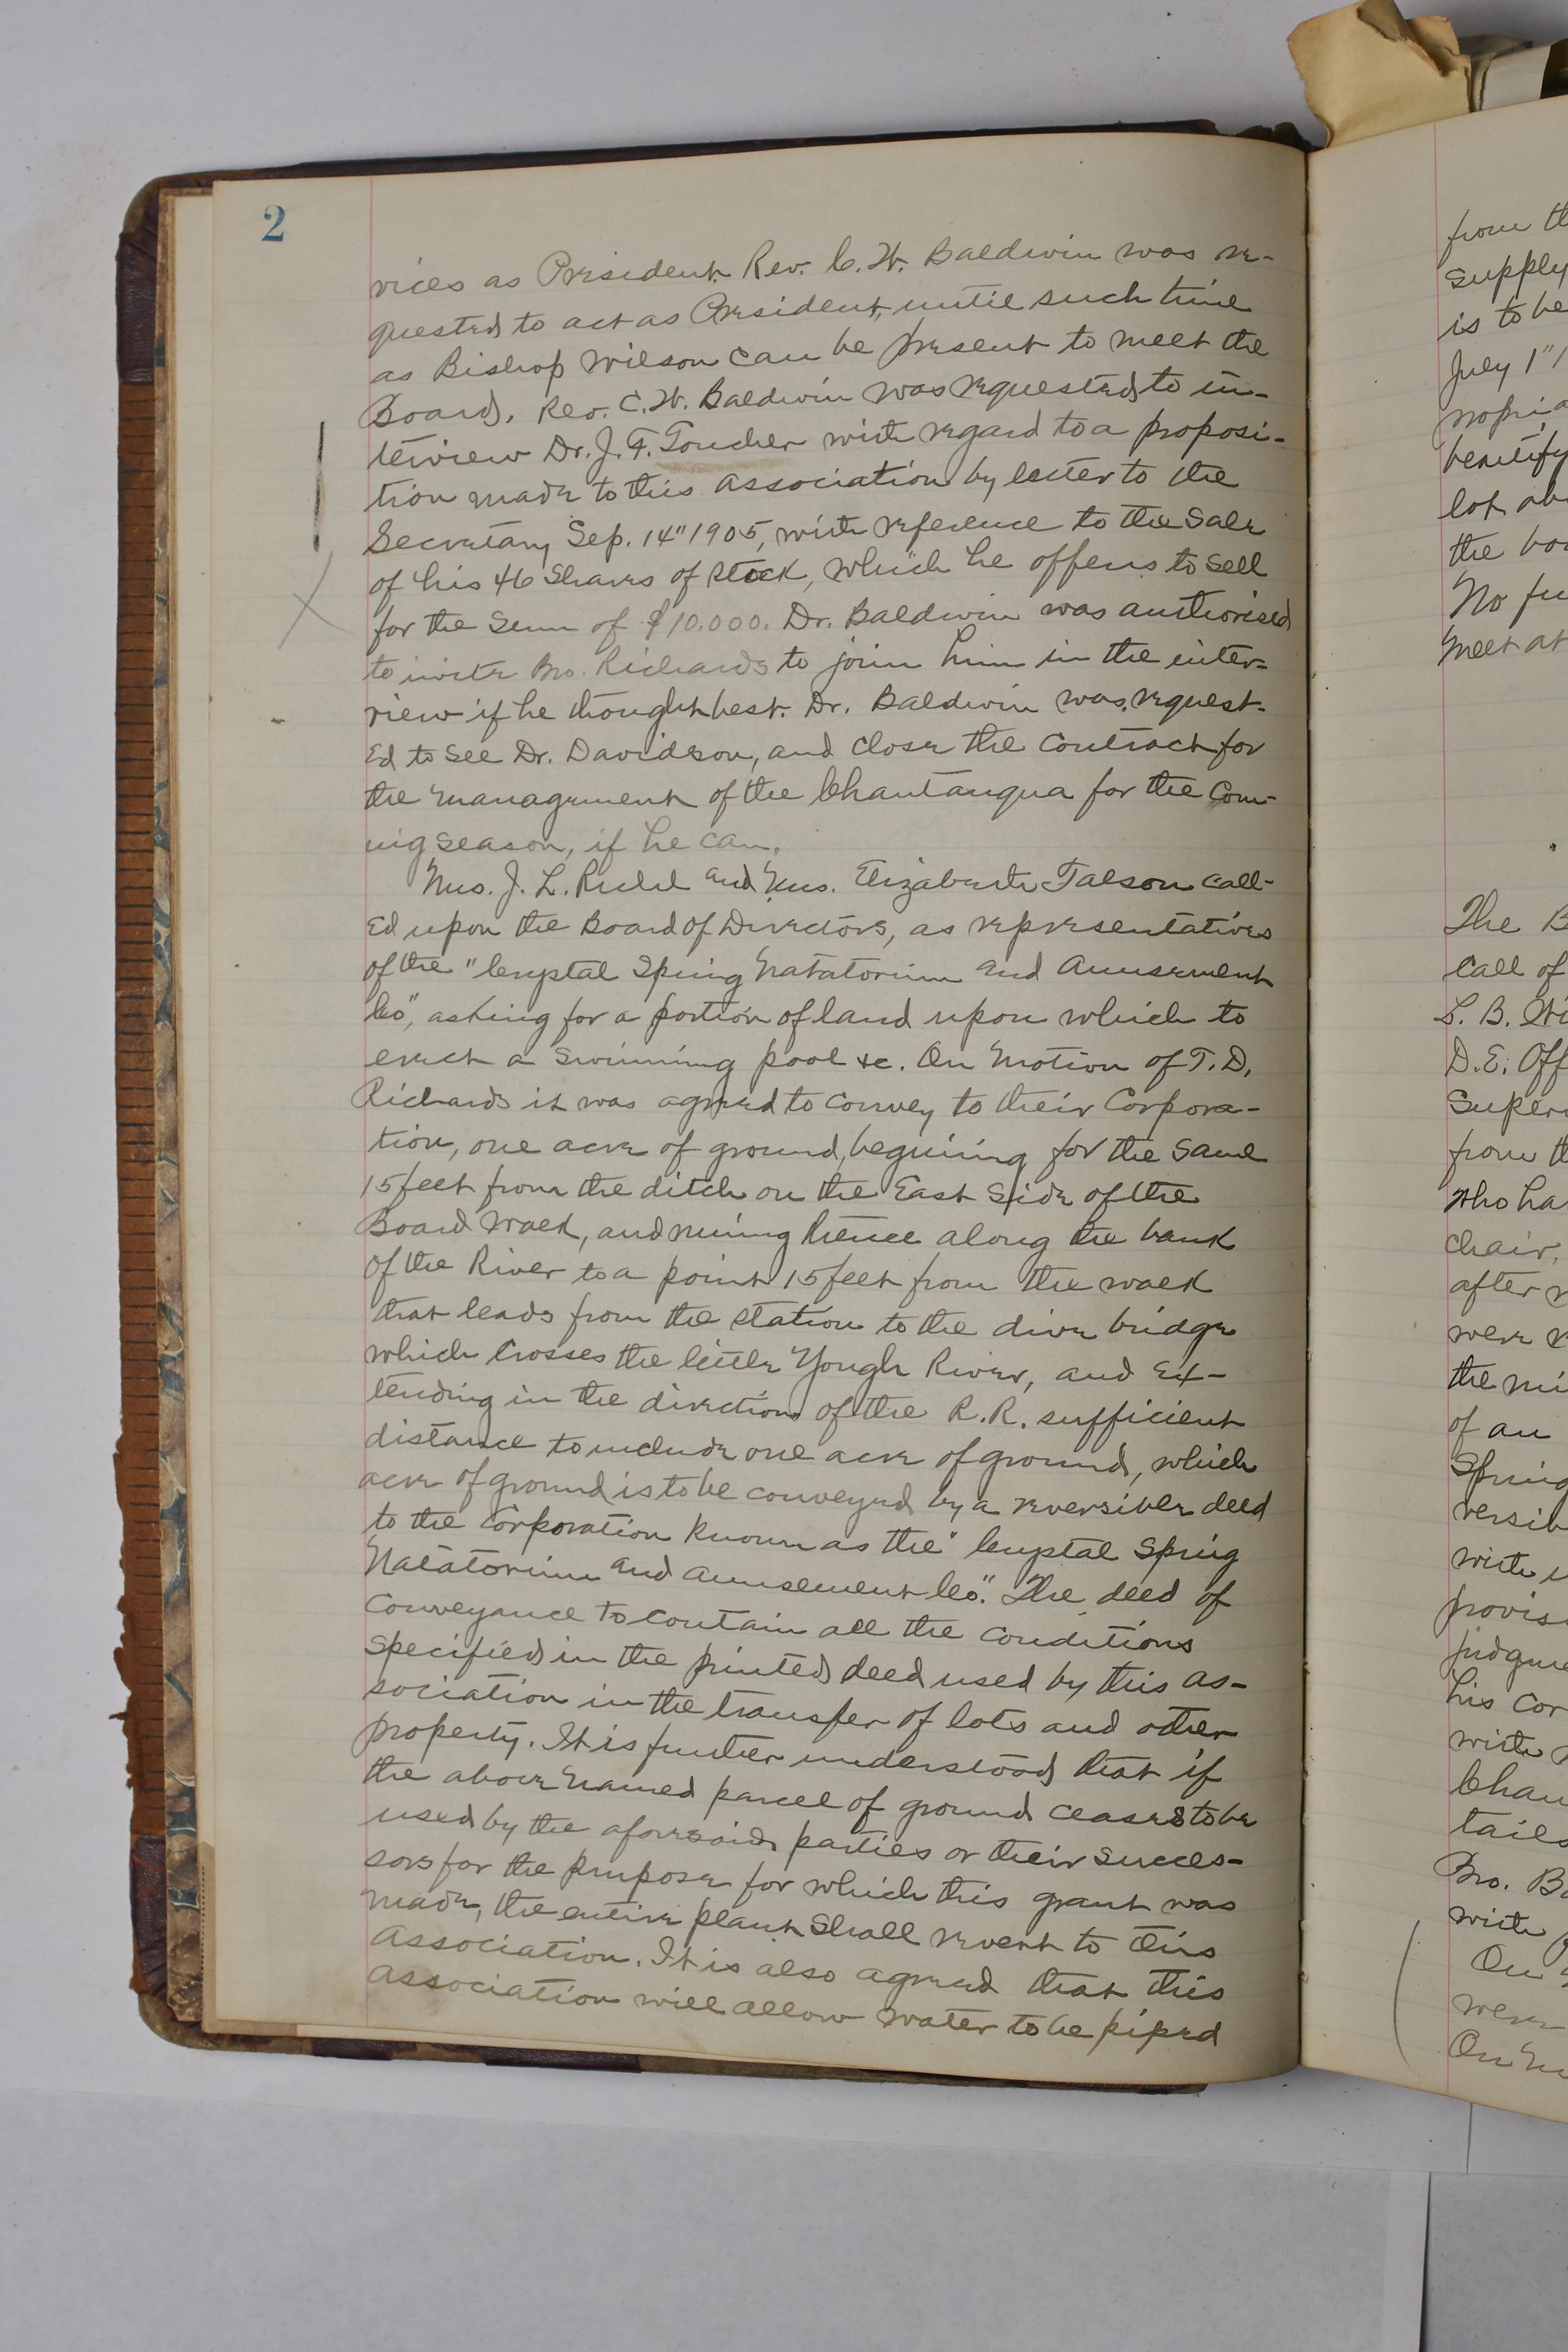 2
vices as President. Rev. C. W. Baldwin was re-
quested to act as President, until such time
as Bishop Wilson can be present to meet the
Board. Rev. C. W. Baldwin was requested to in-
terview Dr. J. F. Goucher with regard to a proposi-
tion made to this association by letter to the
Secretary Sep. 14" 1905, with reference to the Sale
of his 46 Shares of stock, which he offers to sell
for the Sum of $10.000. Dr. Baldwin was authorised
to invite Bro. Richards to join him in the inter-
view if he thought best. Dr. Baldwin was request-
ed to see Dr. Davidson, and close the contract for
the management of the Chautauqua for the com-
ing season, if he can.
Mrs. J. L. and Mrs. Elizabeth call-
ed upon the Board of Directors, as representatives
of the "Crystal Spring Natatorium and Amusement
Co", asking for a portion of land upon which to
erect a swimming pool &c. On motion of T. D.
Richards it was agreed to convey to their Corpora-
tion, one acre of ground, beguining for the same
15 feet from the ditch on the East side of the
Board Walk, and runing hence along the bank
of the River to a point 15 feet from the walk
that leads from the station to the dive bridge
which crosses the little Yough River, and ex-
tending in the direction of the R.R. sufficient
distance to include one acre of ground, which
acre of ground is to be conveyed by a reversible deed
to the Corporation known as the "Crystal Spring
Natatorium and Amusement Co." The deed of
Conveyance to contain all the conditions
specified in the printed deed used by this as-
sociation in the transfer of lots and other
property. It is further understood that if
the above named parcel of ground ceases to be
used by the aforesaid parties or their succes-
sors for the purpose for which this grant was
made, the entire plant shall revert to this
Association. It is also agreed that this
association will allow water to be piped
from th
supply
is to be
July 1" 1
beautify
lot ab
the bo
No fu
meet at
The B
Call of
L. B. Wi
D. E. Off
Super
from th
who ha
chair,
after
were
the mi
of an
Spring
versib
with
provis
judgme
his cor
with
Chau
tails
Bro. Ba
with
On
were
On